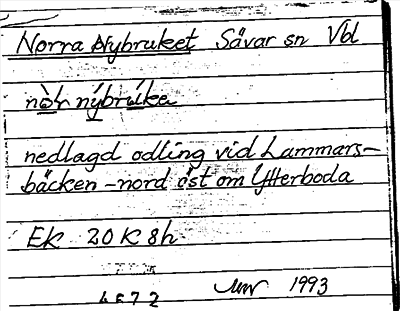 Norra Nybruket Sävar sn Vbl
nòr nýbrúka
nedlagd odling vid Lammars-
bäcken - nord öst om Ytterboda
EK 20 K 8h
1993